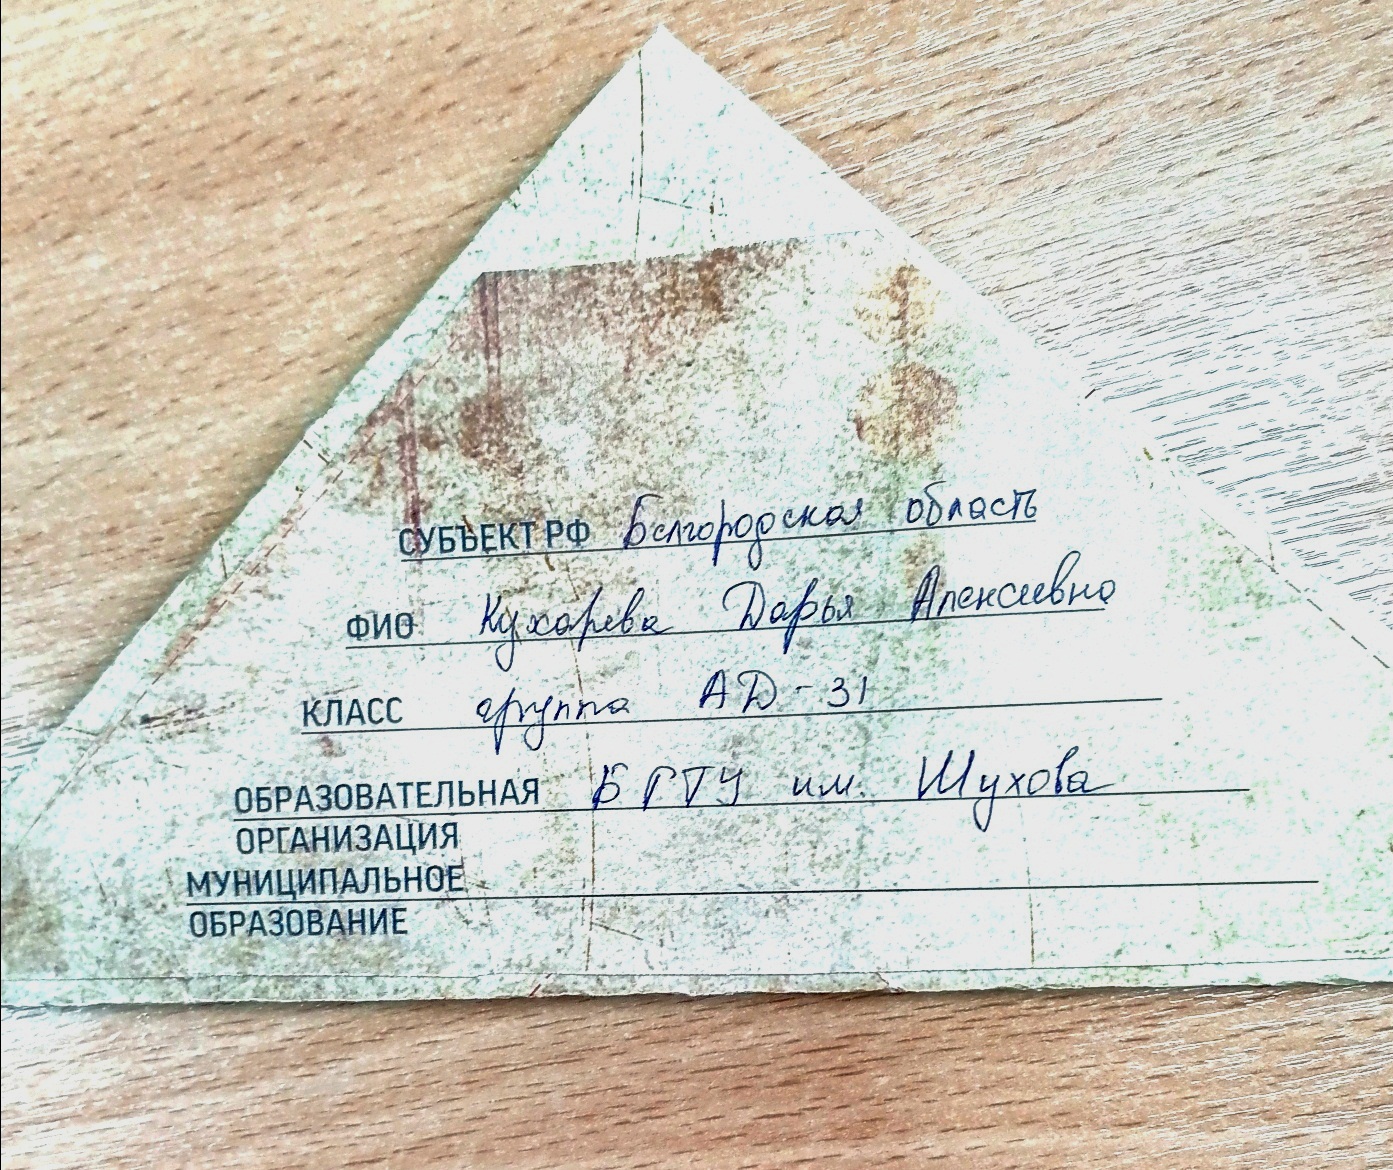 СУБЪЕКТ РФ Белгородская область
ФИО Кухарева Дарья Алексеевна
КЛАСС группа АД-31
ОБРАЗОВАТЕЛЬНАЯ БГТУ им. Шухова
ОРГАНИЗАЦИЯ
МУНИЦИПАЛЬНОЕ
ОБРАЗОВАНИЕ